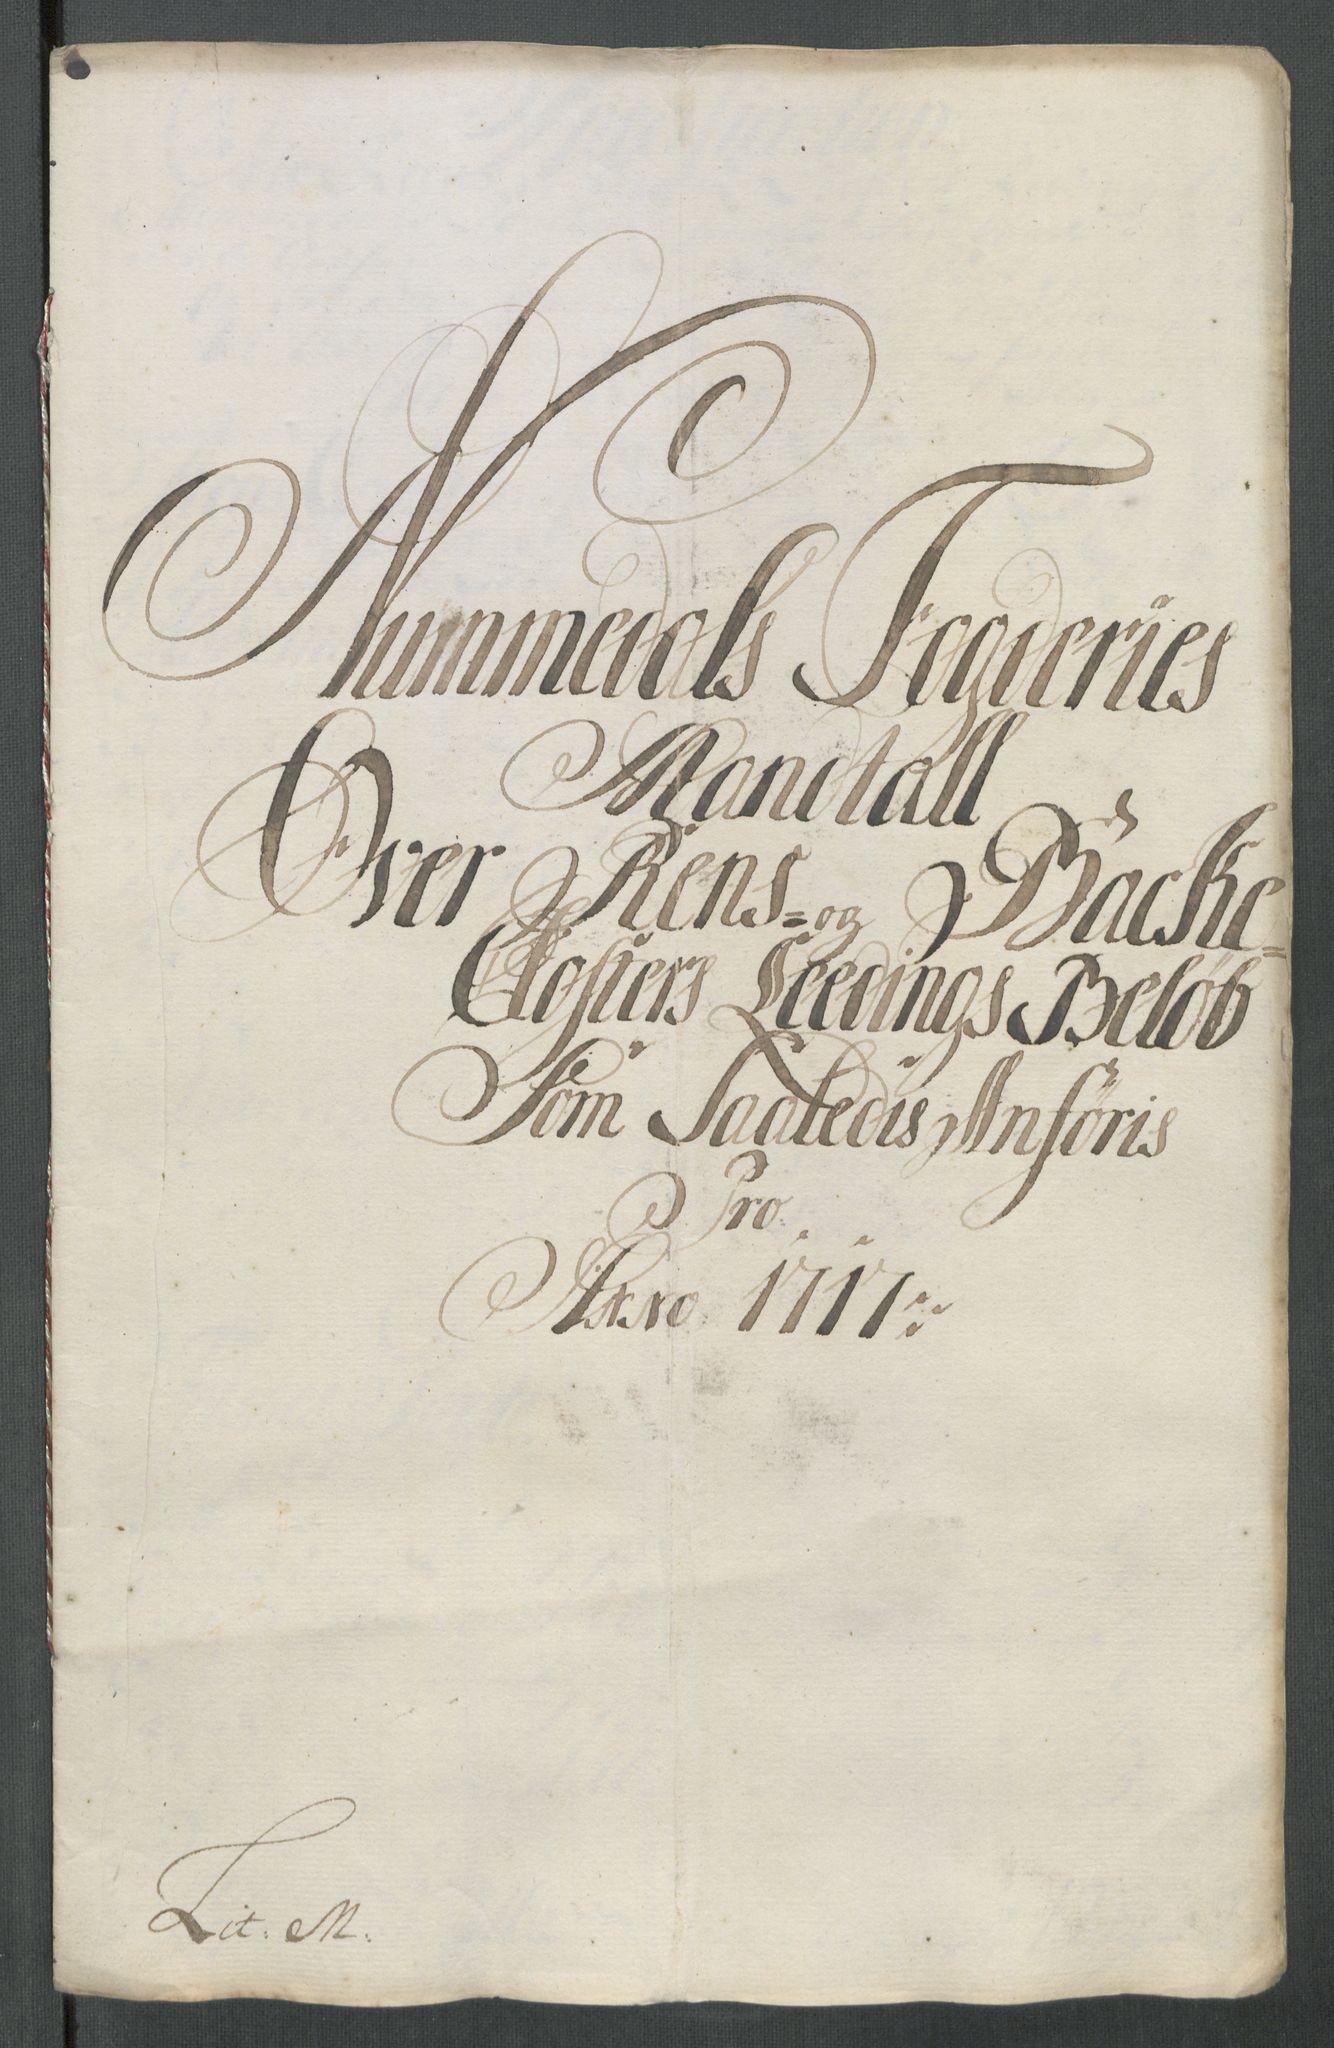 Nummedals Fogderies
Mandtall
Over Rens- og Backe-
Closters Leedings Beløb
Som Saaledis Anføris
Pro
Anno 1717:
Lit. M.